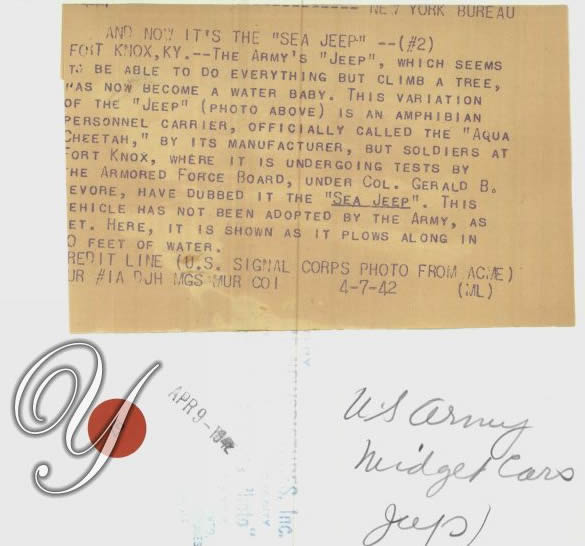 NEW YORK BUREAU
AND NOW IT'S THE "SEA JEEP" --(#2)
FORT KNOX, KY.--THE ARMY'S "JEEP", WHICH SEEMS
TO BE ABLE TO DO EVERYTHING BUT CLIMB A TREE,
AS NOW BECOME A WATER BABY. THIS VARIATION
OF THE "JEEP" (PHOTO ABOVE) IS AN AMPHIBIAN
PERSONNEL CARRIER, OFFICIALLY CALLED THE "AQUA
CHEETAH," BY ITS MANUFACTURER, BUT SOLDIERS AT
FORT KNOX, WHERE IT IS UNDERGOING TESTS BY
HE ARMORED FORCE BOARD, UNDER COL. GERALD B.
EVORE, HAVE DUBBED IT THE "SEA JEEP". THIS
EHICLE HAS NOT BEEN ADOPTED BY THE ARMY, AS
ET. HERE, IT IS SHOWN AS IT PLOWS ALONG IN
0 FEET OF WATER.
REDIT LINE (U.S. SIGNAL CORPS PHOTO FROM ACME)
UR #1A DJH MGS MUR COI 4-7-42 (ML)
Y
APR 9 - 1942
US Army
Midget Cars
Jeep)